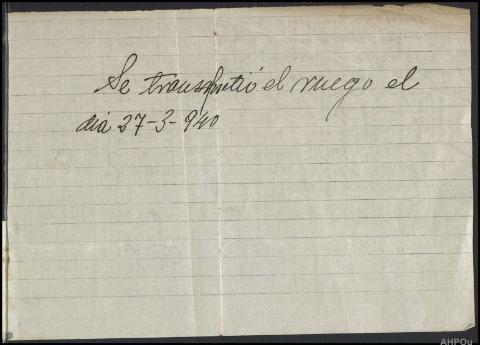 Se transmitió el ruego el
dia 27-3-940
AHPOu